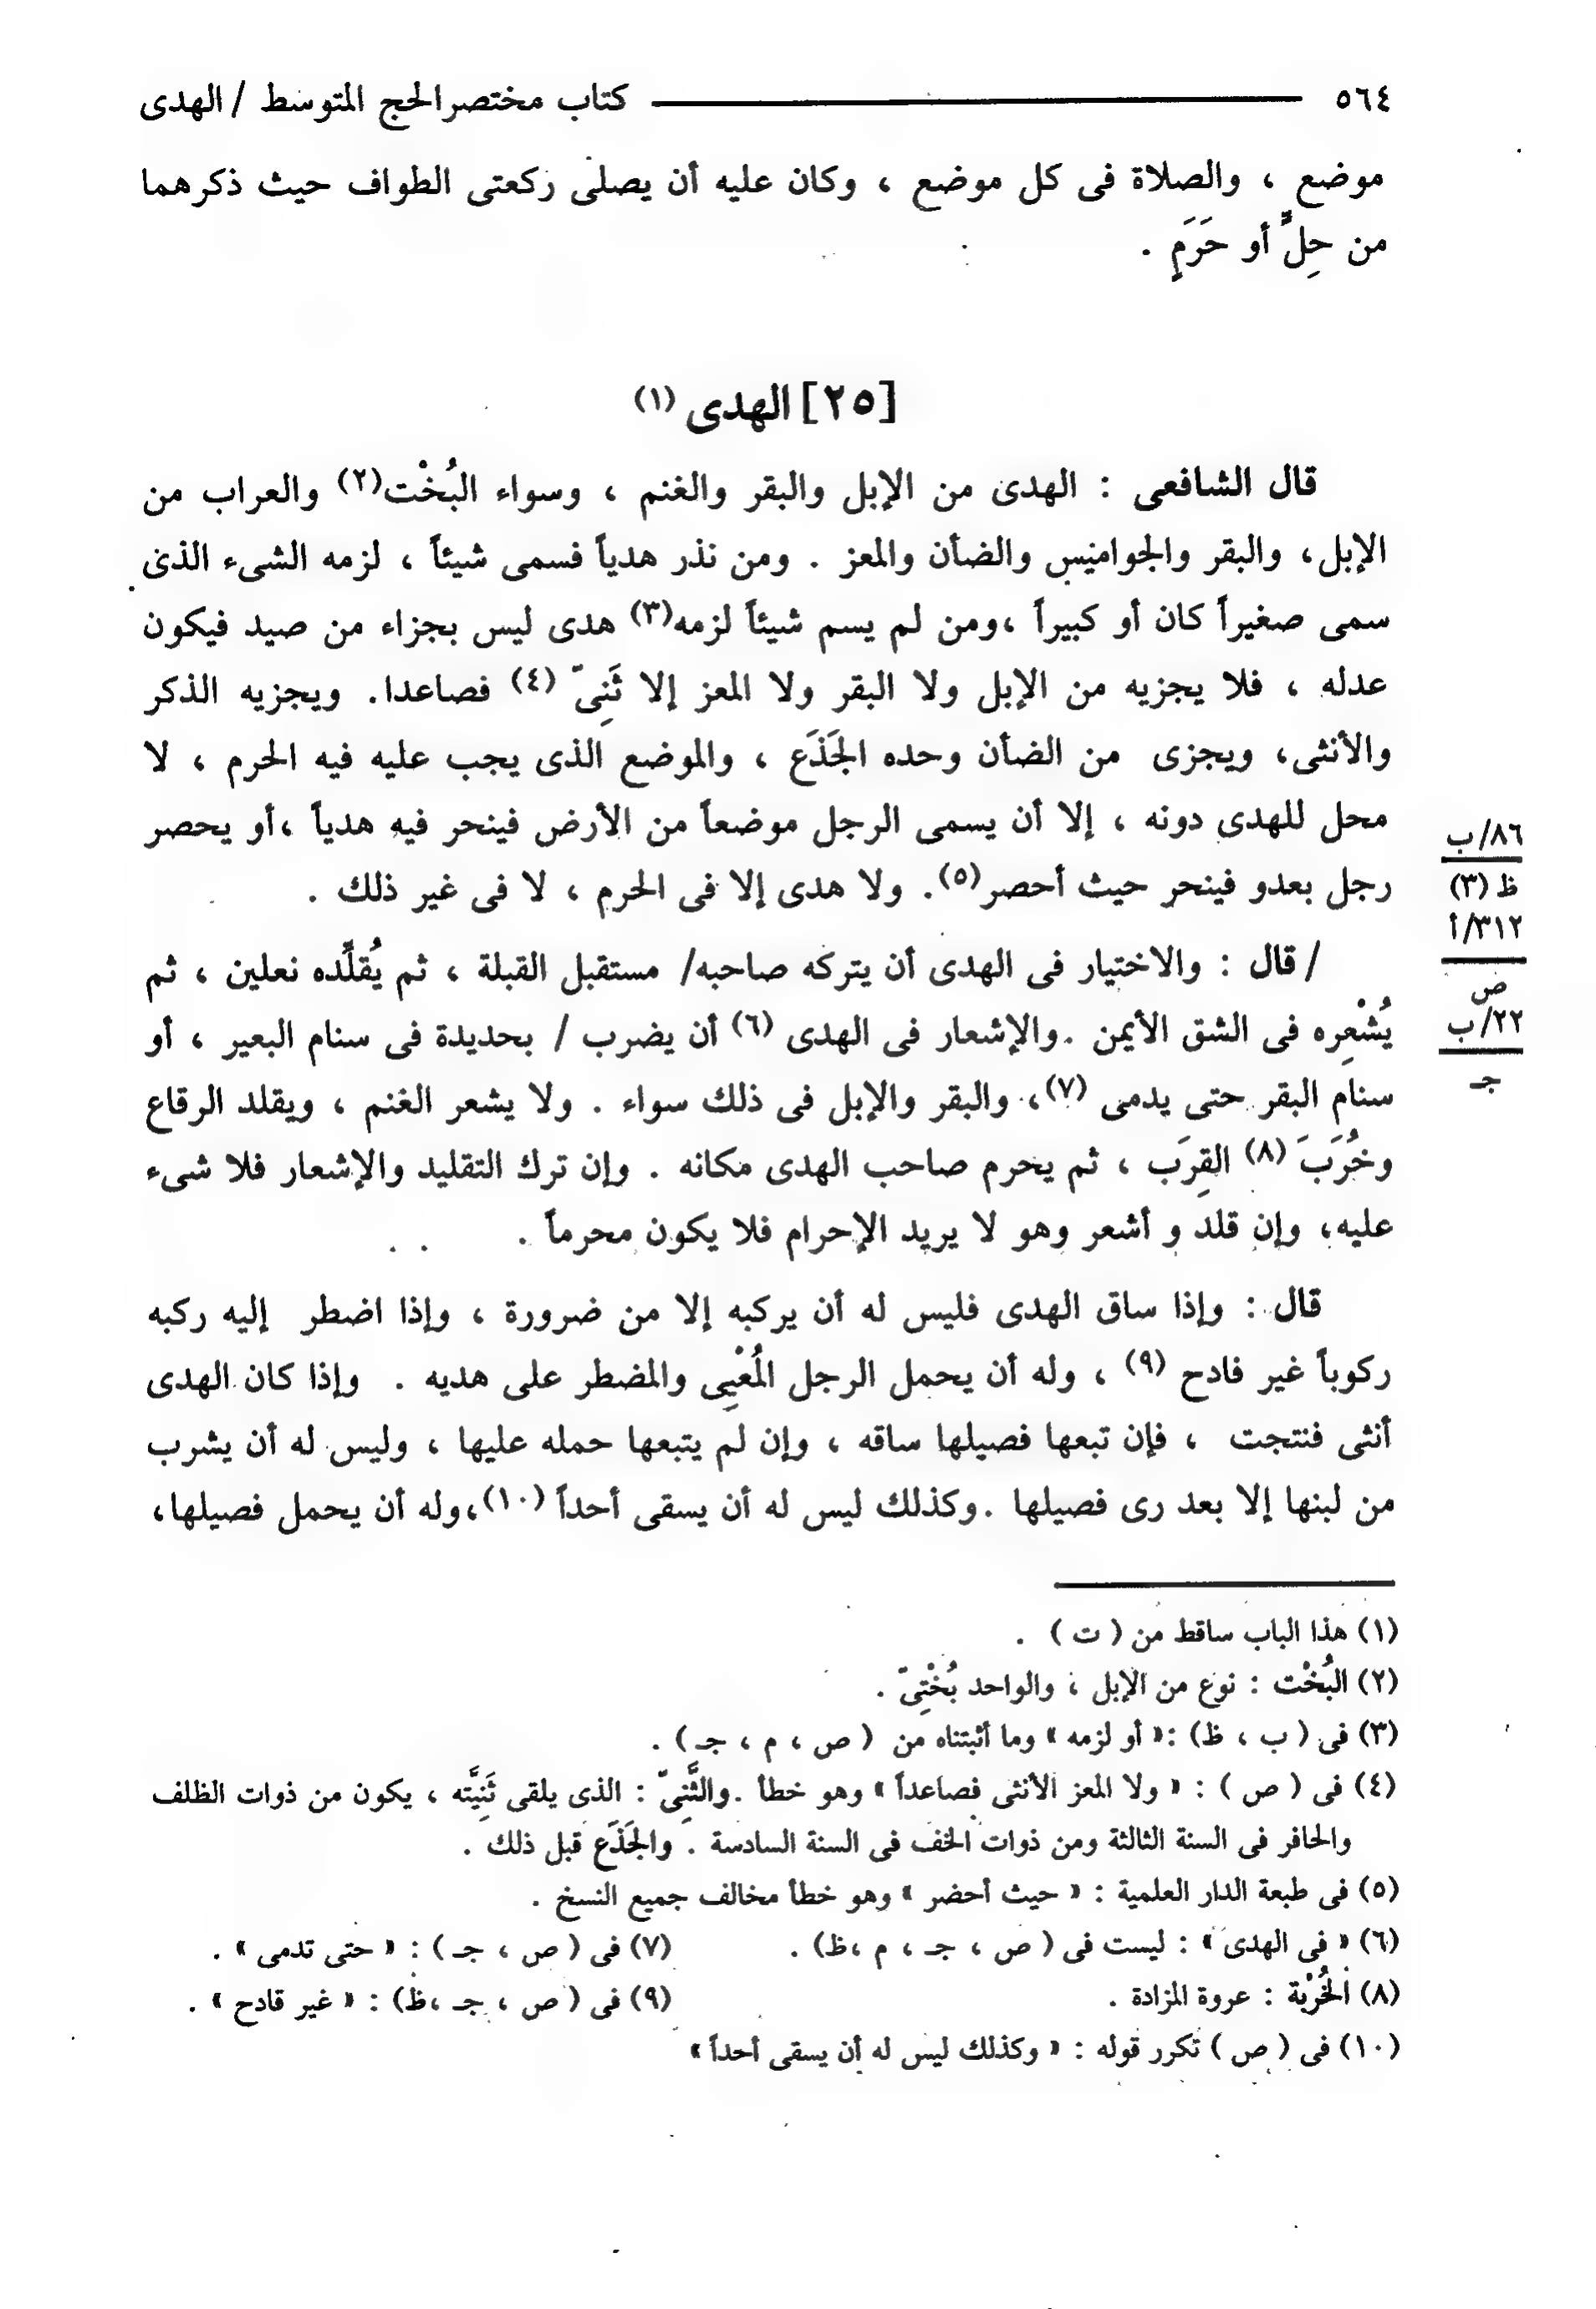 ٥٦٤ كتاب مختصر الحج المتوسط / الهدى
موضع ، والصلاة فى كل موضع ، وكان عليه أن يصلى ركعتى الطواف حيث ذكرهما
من حِلٍّ أو حَرَمٍ .
[٢٥] الهدى (١)
قال الشافعى : الهدى من الإبل والبقر والغنم ، وسواء البُخْت(٢) والعراب من
الإبل، والبقر والجواميس والضأن والمعز . ومن نذر هدياً فسمى شيئاً ، لزمه الشىء الذى
سمى صغيراً كان أو كبيراً ،ومن لم يسم شيئاً لزمه(٣) هدى ليس بجزاء من صيد فيكون
عدله ، فلا يجزيه من الإبل ولا البقر ولا المعز إلا ثَنِىّ (٤) فصاعدا. ويجزيه الذكر
والأنثى، ويجزى من الضأن وحده الجَذَع ، والموضع الذى يجب عليه فيه الحرم ، لا
محل للهدى دونه ، إلا أن يسمى الرجل موضعاً من الأرض فينحر فيه هدياً ،أو يحصر
٨٦/ب
رجل بعدو فينحر حيث أحصر(٥). ولا هدى إلا فى الحرم ، لا فى غير ذلك .
ظ (٣)
٣١٢/أ
/ قال : والاختيار فى الهدى أن يتركه صاحبه/ مستقبل القبلة ، ثم يُقلِّده نعلين ، ثم
ص
يُشْعِره فى الشق الأيمن .والإشعار فى الهدى (٦) أن يضرب / بحديدة فى سنام البعير ، أو
٢٢/ب
سنام البقر حتى يدمى (٧)، والبقر والإبل فى ذلك سواء . ولا يشعر الغنم ، ويقلد الرقاع
جـ
وخُرَبَ (٨) القِرَب ، ثم يحرم صاحب الهدى مكانه . وإن ترك التقليد والإشعار فلا شىء
عليه، وإن قلد و أشعر وهو لا يريد الإحرام فلا يكون محرماً .
قال : وإذا ساق الهدى فليس له أن يركبه إلا من ضرورة ، وإذا اضطر إليه ركبه
ركوباً غير فادح (٩) ، وله أن يحمل الرجل المُعْيِى والمضطر على هديه . وإذا كان الهدى
أنثى فنتجت ، فإن تبعها فصيلها ساقه ، وإن لم يتبعها حمله عليها ، وليس له أن يشرب
من لبنها إلا بعد رى فصيلها .وكذلك ليس له أن يسقى أحداً (١٠)،وله أن يحمل فصيلها،
(١) هذا الباب ساقط من ( ت ) .
(٢) البُخْت : نوع من الإبل ، والواحد بُخْتِىّ .
(٣) فى ( ب ، ظ) :« أو لزمه » وما أثبتناه من ( ص ، م ، جـ ) .
(٤) فى ( ص ) : « ولا المعز الأنثى فصاعداً » وهو خطأ .والثَّنِىّ : الذى يلقى ثَنِيَّته ، يكون من ذوات الظلف
والحافر فى السنة الثالثة ومن ذوات الخف فى السنة السادسة . والجَذَع قبل ذلك .
(٥) فى طبعة الدار العلمية : « حيث أحضر » وهو خطأ مخالف جميع النسخ .
(٦) « فى الهدى » : ليست فى ( ص ، جـ ، م ،ظ) . (٧) فى ( ص ، جـ ) : « حتى تدمى » .
(٨) الخُرْبَة : عروة المزادة . (٩) فى ( ص ، جـ ،ظ) : « غير قادح » .
(١٠) فى ( ص ) تكرر قوله : « وكذلك ليس له أن يسقى أحداً »